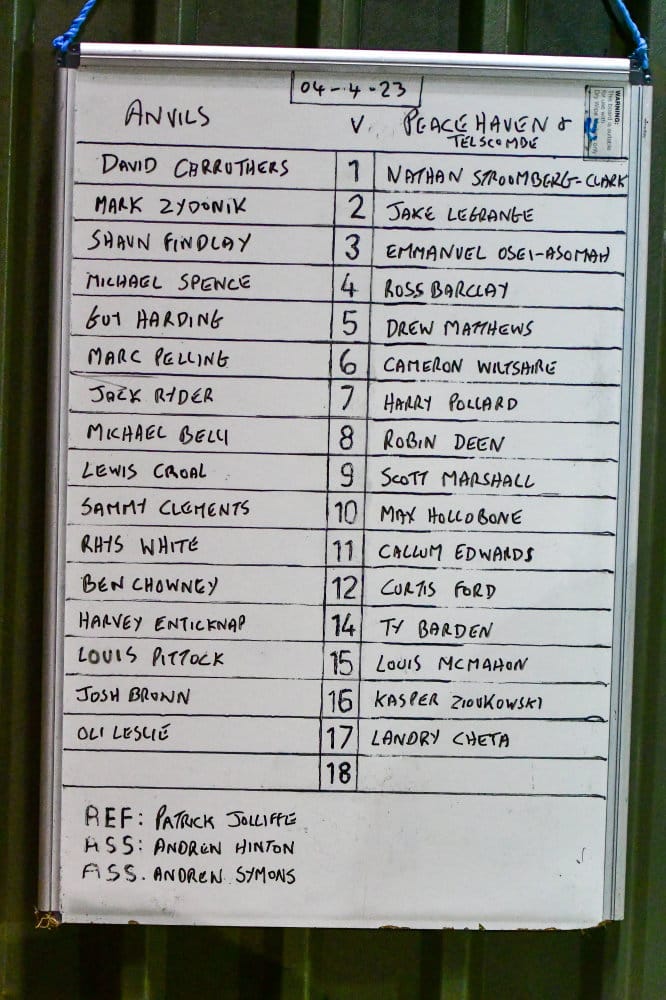 04-4-23
ANVILS V. PEACEHAVEN &
TELSCOMBE
DAVID CARRUTHERS 1 NATHAN STROOMBERG-CLARK
MARK ZYDONIK 2 JAKE LEGRANGE
SHAUN FINDLAY 3 EMMANUEL OSEI-ASOMAH
MICHAEL SPENCE 4 ROSS BARCLAY
GUY HARDING 5 DREW MATTHEWS
MARC PELLING 6 CAMERON WILTSHIRE
JACK RYDER 7 HARRY POLLARD
MICHAEL BELLI 8 ROBIN DEEN
LEWIS CROAL 9 SCOTT MARSHALL
SAMMY CLEMENTS 10 MAX HOLLOBONE
RHYS WHITE 11 CALLUM EDWARDS
BEN CHOWNEY 12 CURTIS FORD
HARVEY ENTICKNAP 14 TY BARDEN
LOUIS PITTOCK 15 LOUIS MCMAHON
JOSH BROWN 16 KASPER ZIOUKOWSKI
OLI LESLIE 17 LANDRY CHETA
18
REF: PATRICK JOLLIFFE
ASS: ANDREW HINTON
ASS. ANDREW SYMONS
WARNING:
This board is suitable
for use with
Dry Wipe only